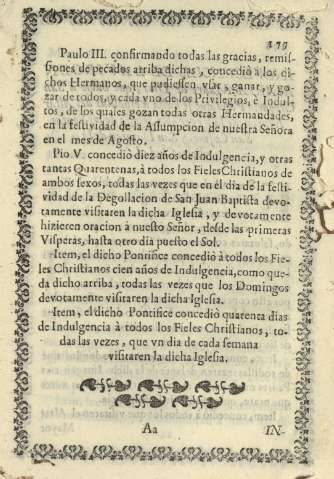 177
Paulo III. confirmando todas las gracias, remis-
siones de pecados arriba dichas, concediò à los di-
chos Hermanos, que pudiessen vsar, ganar, y go-
zar de todos, y cada vno de los Privilegios, è Indul-
tos, de los quales gozan todas otras Hermandades,
en la festividad de la Assumpcion de nuestra Señora
en el mes de Agosto.
Pio V. concediò diez años de Indulgencia, y otras
tantas Quarentenas, à todos los Fieles Christianos de
ambos sexos, todas las vezes que en el dia de la festi-
vidad de la Degollacion de San Juan Baptista devo-
tamente visitaren la dicha Iglesia, y devotamente
hizieren oracion à nuestro Señor, desde las primeras
Visperas, hasta otro dia puesto el Sol.
Item, el dicho Pontifice concediò à todos los Fie-
les Christianos cien años de Indulgencia, como que-
da dicho arriba, todas las vezes que los Domingos
devotamente visitaren la dicha Iglesia.
Item, el dicho Pontifice concediò quarenta dias
de Indulgencia à todos los Fieles Christianos, to-
das las vezes, que vn dia de cada semana
visitaren la dicha Iglesia.
Aa IN-